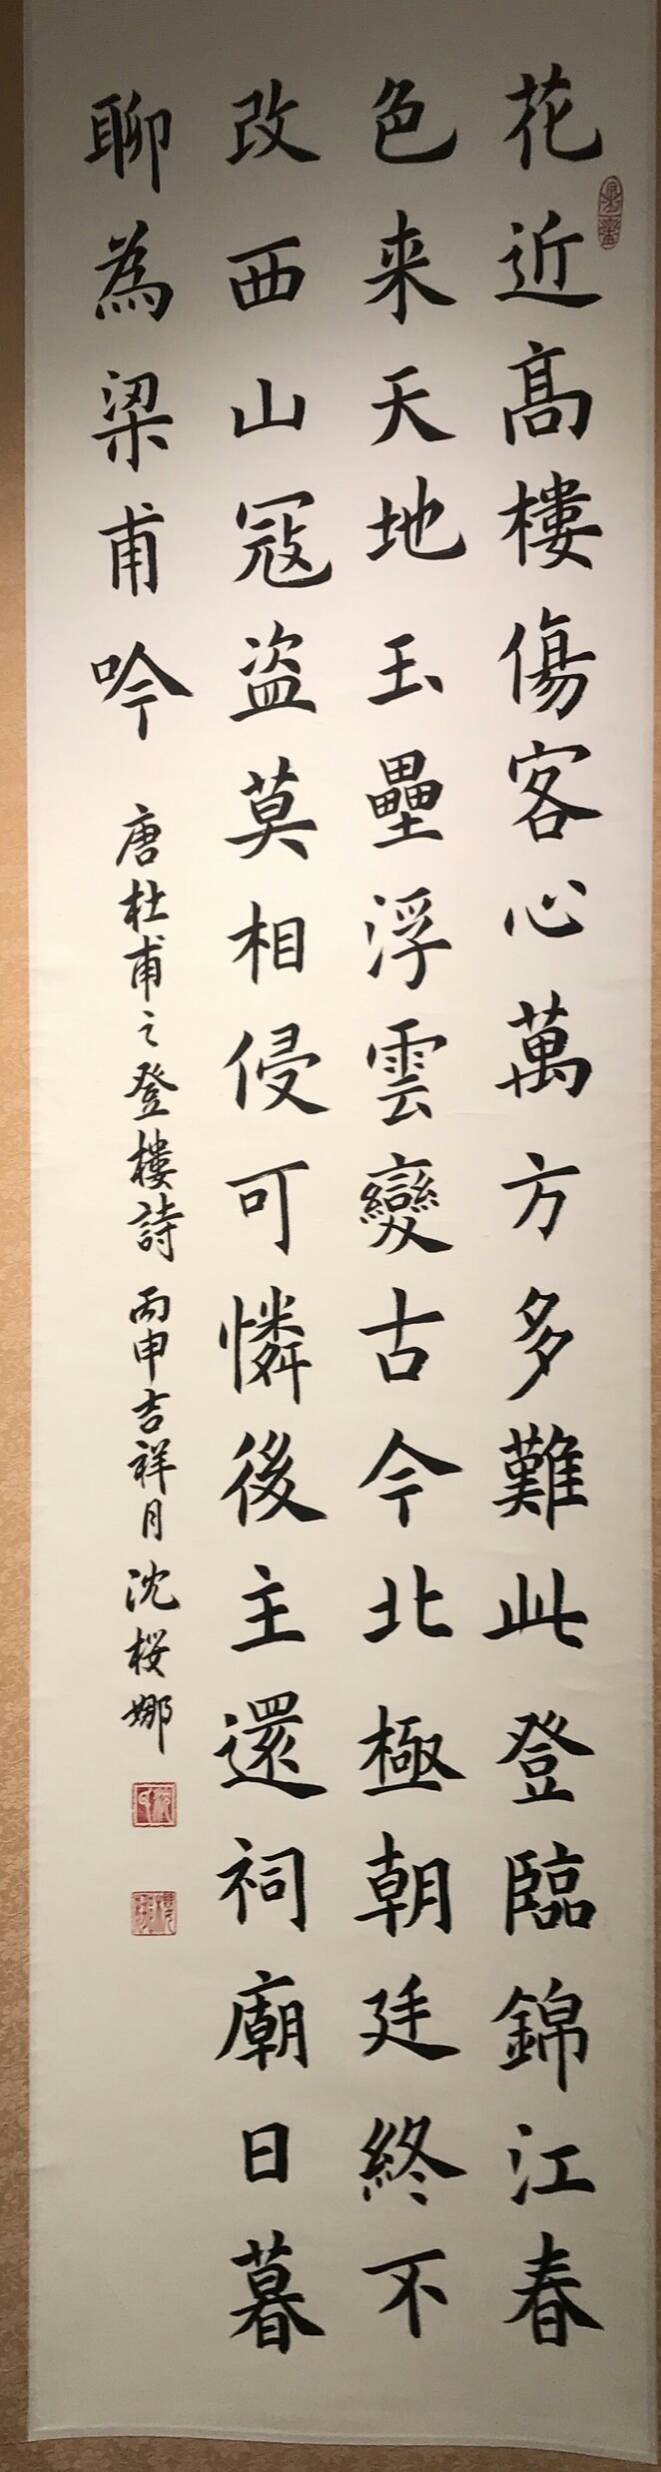 花近高樓傷客心萬方多難此登臨錦江春
色来天地玉壘浮雲變古今北極朝廷終不
改西山冦盗莫相侵可憐後主還祠廟日暮
聊為梁甫吟
唐杜甫之登樓詩 丙申吉祥月 沈桜娜